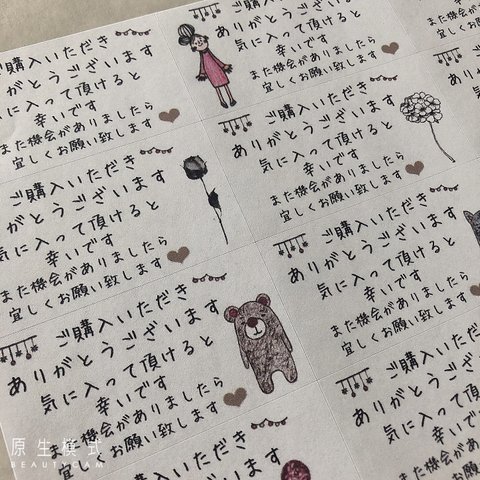 ご購入いただき
がとうございます
に入って頂けると
幸いです
また機会がありましたら
宜しくお願い致します
ありがとうございます
気に入って頂けると
幸いです
また機会がありましたら
宜しくお願い致します
ご購入いただき
がとうございます
気に入って頂けると
幸いです
また機会がありましたら
宜しくお願い致します
ご購入いただき
ありがとうございます
気に入って頂けると
幸いです
また機会がありましたら
宜しくお願い致します
ご購入いただき
ありがとうございます
気に入って頂けると
幸いです
また機会がありましたら
宜しくお願い致します
ご購入いただき
ありがとうございます
気に入って頂けると
幸いです
また機会がありましたら
宜しくお願い致します
原生模式
BEAUTYCAM